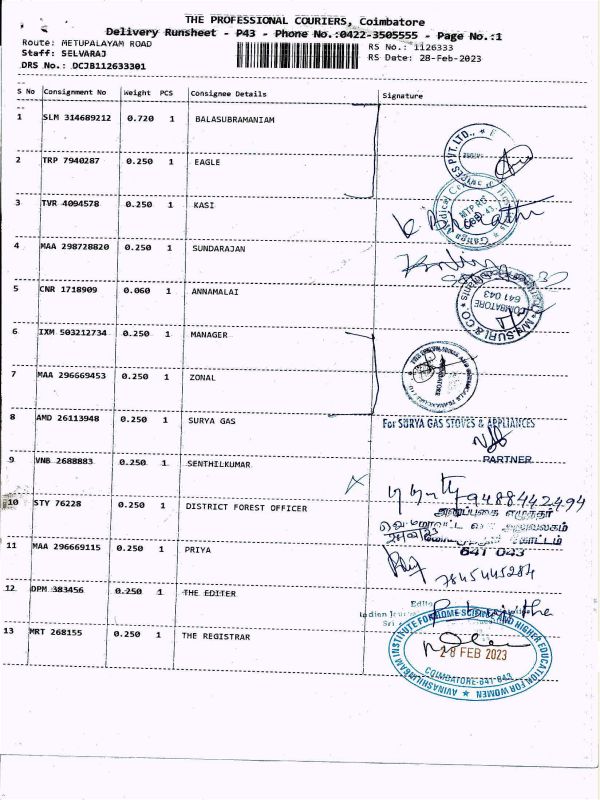 THE PROFESSIONAL COURIERS, Coimbatore
Delivery Runsheet - P43 - Phone No.:0422-3505555 - Page No.:1
Route: METUPALAYAM ROAD RS No.: 1126333
Staff: SELVARAJ RS Date: 28-Feb-2023
DRS No.: DCJB112633301
S No Consignment No Weight PCS Consignee Details Signature
1 SLM 314689212 0.720 1 BALASUBRAMANIAM
2 TRP 7940287 0.250 1 EAGLE
3 TVR 4094578 0.250 1 KASI
4 MAA 298728820 0.250 1 SUNDARAJAN
5 CNR 1718909 0.060 1 ANNAMALAI
COIMBATORE
641 043
6 IXM 503212734 0.250 1 MANAGER
7 MAA 296669453 0.250 1 ZONAL
8 AMD 26113948 0.250 1 SURYA GAS For SURYA GAS STOVES & APPLIANCES
PARTNER
9 VNB 2688883 0.250 1 SENTHILKUMAR
9488442494
10 STY 76228 0.250 1 DISTRICT FOREST OFFICER
641 043
11 MAA 296669115 0.250 1 PRIYA
7845445284
12 DPM 383456 0.250 1 THE EDITER
13 MRT 268155 0.250 1 THE REGISTRAR
AVINASHILINGAM INSTITUTE FOR HOME SCIENCE AND HIGHER EDUCATION FOR WOMEN
28 FEB 2023
COIMBATORE-641 043